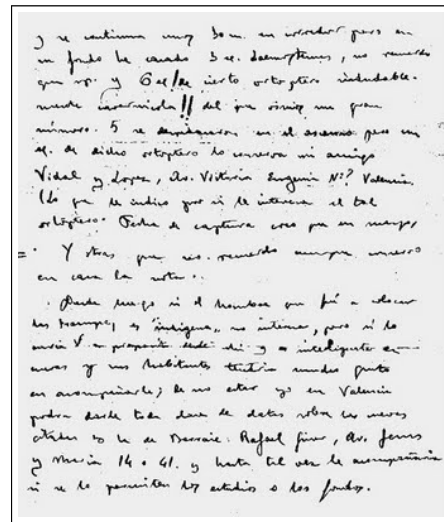 y se continua muy bien en corredor pero en
su fondo he cazado 3 ej. , no recuerdo
que sp. y 6 ej. de cierto ortoptero indudable-
mente cavernicola!! del que vimos un gran
número. 5 se en el pero un
ej. de dicho ortoptero lo conserva mi amigo
Vidal y Lopez, Av. Victoria Eugenia Nº? Valencia.
(Lo que le indico por si le interesa el tal
ortóptero. Fecha de captura creo que en mayo,
Y otras que no recuerdo aunque conservo
en casa la nota.
Desde luego si el hombre que fué a colocar
los trampas, es "indigena", no interesa, pero si lo
envia V. en proposito desde ahi y es inteligente en
cuevas y sus habitantes tendria mucho gusto
en acompañarle; de no estar yo en Valencia
podra darle toda clase de datos sobre las cuevas
citadas Rafael Giner, Av. Jesus
y Maria 14 o 41. y hasta tal vez le acompañaria
si se lo permiten los estudios o los fondos.